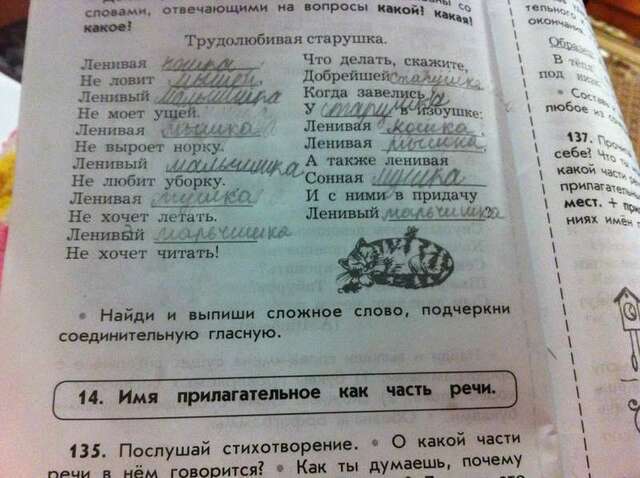 словами, отвечающими на вопросы какой? какая?
какое?
Трудолюбивая старушка.
Ленивая кошка
Не ловит мышей.
Ленивый мальчишка
Не моет ушей.
Ленивая мышка
Не выроет норку.
Ленивый мальчишка
Не любит уборку.
Ленивая мушка
Не хочет летать.
Ленивый мальчишка
Не хочет читать!
Что делать, скажите,
Добрейшей старушке
Когда завелись
У старушки в избушке:
Ленивая кошка,
Ленивая мышка,
А также ленивая
Сонная мушка
И с ними в придачу
Ленивый мальчишка?
• Найди и выпиши сложное слово, подчеркни
соединительную гласную.
14. Имя прилагательное как часть речи.
135. Послушай стихотворение. • О какой части
речи в нём говорится? • Как ты думаешь, почему
тельного
окончани
Образе
В тёпл
под
• Состав
любое из со
137. Прочи
себе? Что
какой части
прилагатель
мест. + при
ниях имён